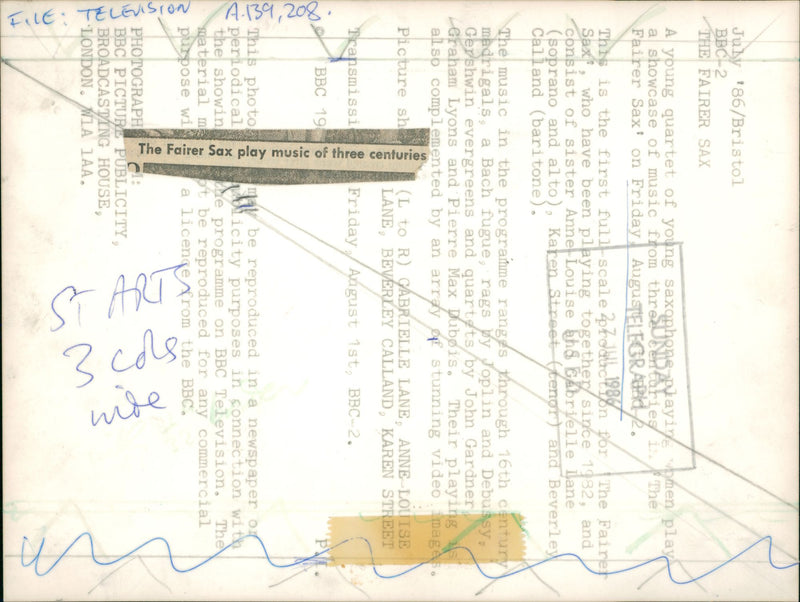 FILE: TELEVISION A.139,208.
July '86/Bristol
BBC-2
THE FAIRER SAX
A young quartet of young saxophone playing women play
a showcase of music from three centuries in 'The
Fairer Sax' on Friday, August BBC-2.
This is the first full-scale production for 'The Fairer
Sax', who have been playing together since 1982, and
consist of sister Anne-Louise and Gabrielle Lane
(soprano and alto), Karen Street (tenor) and Beverley
Calland (baritone).
The music in the programme ranges through 16th century
madrigals, a Bach fugue, rags by Joplin and Debussy,
Gershwin evergreens and quartets by John Gardner,
Graham Lyons and Pierre Max Dubois. Their playing is
also complemented by an array of stunning video images.
Picture sh (L to R) GABRIELLE LANE, ANNE-LOUISE
LANE, BEVERLEY CALLAND, KAREN STREET
Transmissi Friday, August 1st, BBC-2.
© BBC 19
This photo be reproduced in a newspaper or
periodical licity purposes in connection with
the showin e programme on BBC Television. The
material m t be reproduced for any commercial
purpose wi a licence from the BBC.
PHOTOGRAPH
BBC PICTURE PUBLICITY,
BROADCASTING HOUSE,
LONDON. W1A 1AA.
SUNDAY
TELEGRAPH
27 JUL 1986
The Fairer Sax play music of three centuries
ST ARTS
3 cols
wide